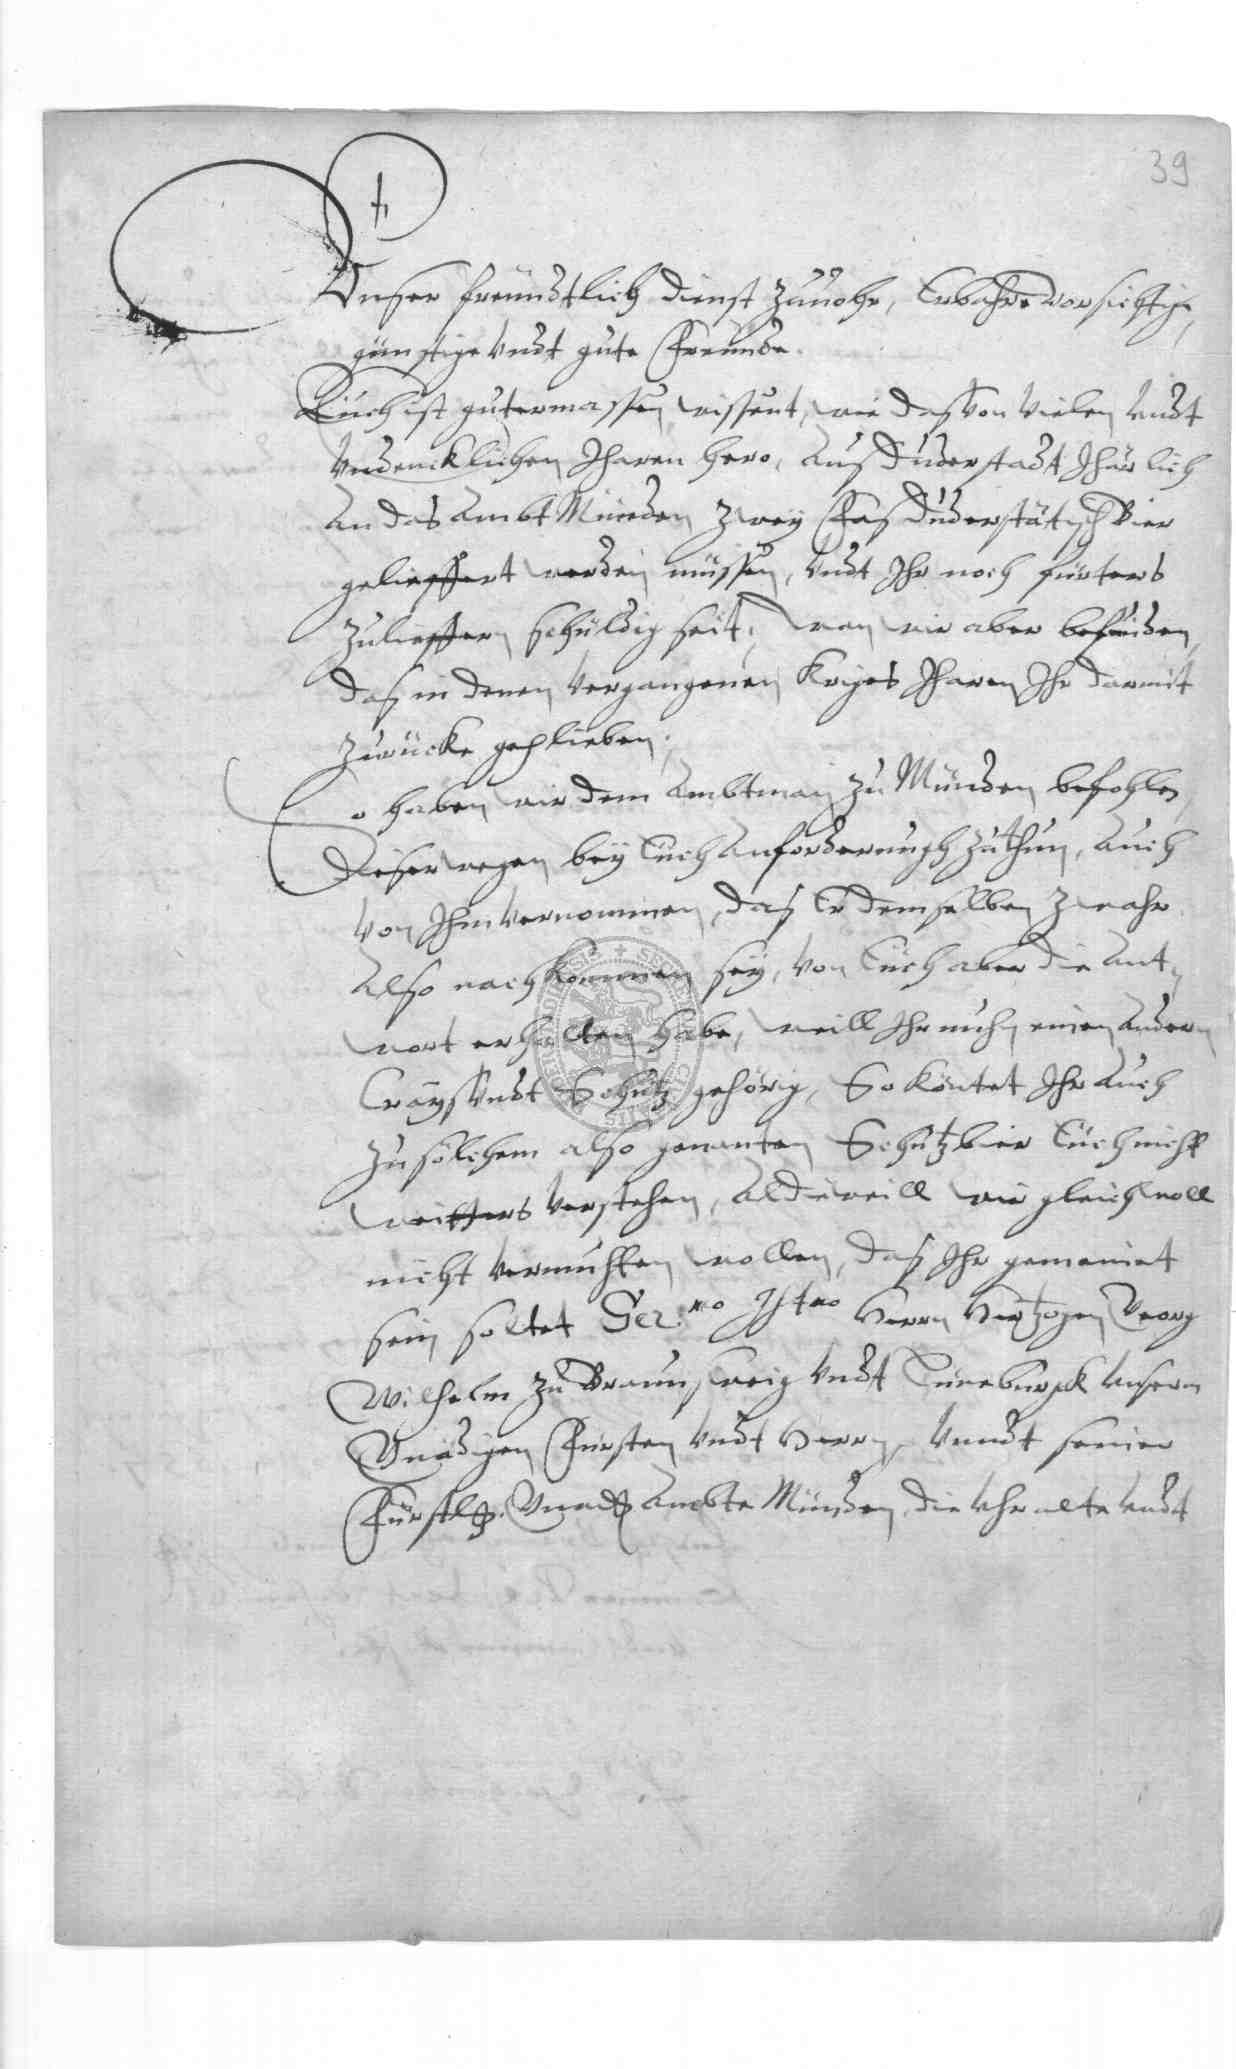 39
Unser freundtlich dienst zuuohr, Erbahre vorsichtige,
günstige undt gute Freunde.
Euch ist gutermassen wissent, wie das von vielen undt
undencklichen Jharen hero, aus Duderstadt Jhärlich
an das Ambt Münden zwey Fas Duderstätisch Bier
gelieffert werden müssen, undt Ihr noch fürters
zulieffern schüldig seit, wan wir aber befinden,
das in denen vergangenen Kriges Jharen Ihr darmit
zurücke geblieben,
So haben wir dem Ambtman zu Münden befohlen,
dieserwegen bey Euch anforderungh zuthun, auch
von Ihm vernommen, das Er demselben zwahr
also nachkommen sey, von Euch aber die Ant,
wort erhalten habe, weill Ihr nuhn einen andern
Crays undt Schutz gehörig, So köntet Ihr auch
zu solchem also genanten Schutzbier Euch nicht
weitters verstehen, Aldieweill wir gleichwoll
nicht vermuhten wollen, das Ihr gemeinet
sein soltet Ser:mo Jstmo Herrn Hertzogen Georg
Wilhelm zu Braunsweig undt Lüneburgk unserm
Gnädigen Fürsten undt Herrn, unndt seiner
Fürstl. Gnad. Ambte Münden, die Uhralte undt